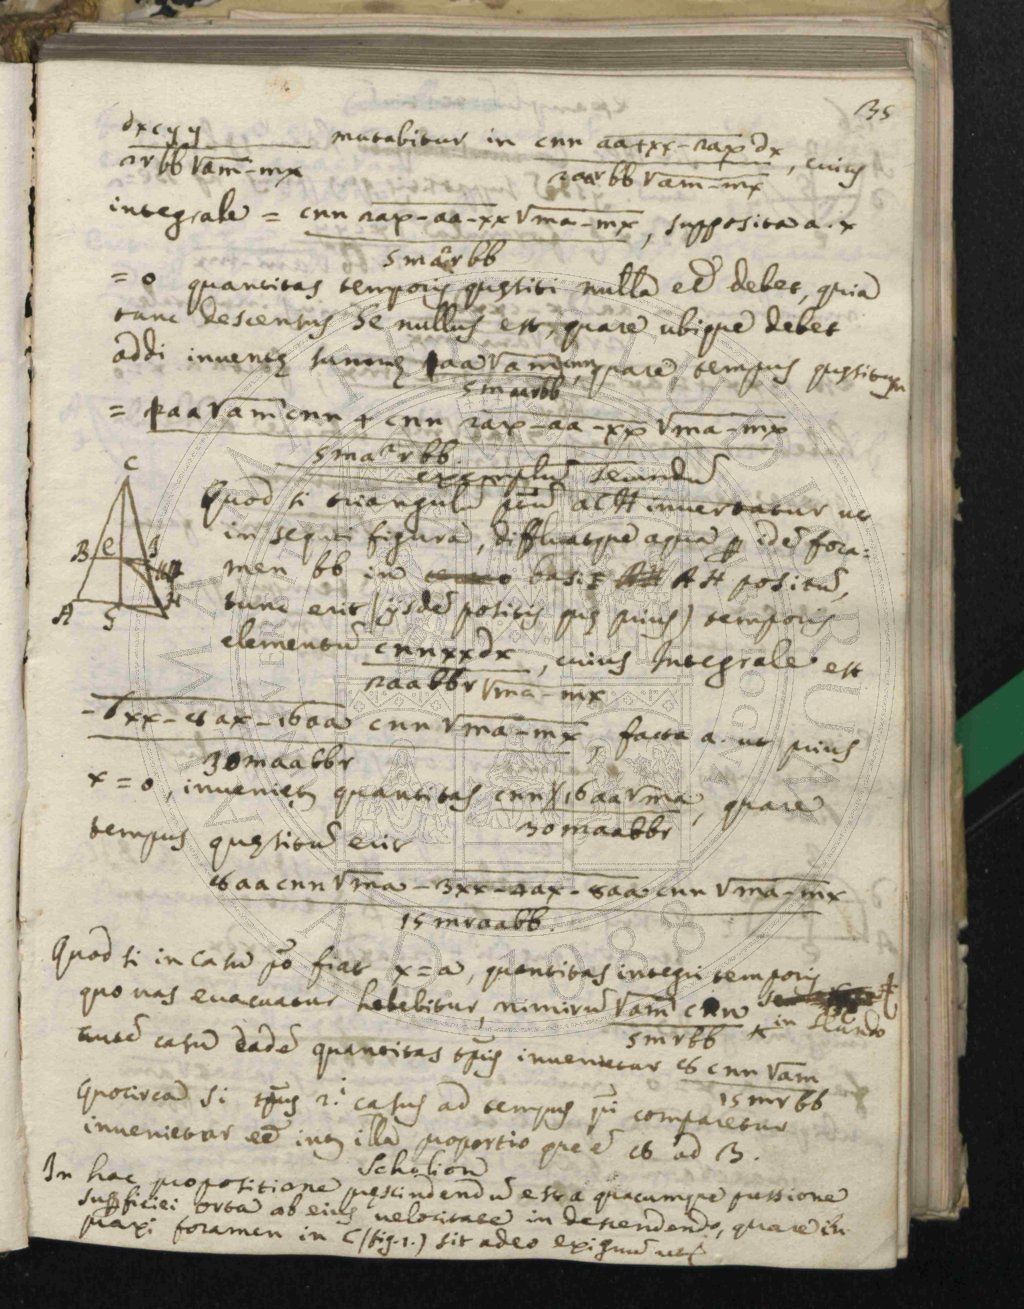 35
dxcyy / 2rbb√am-mx mutabitur in cnn aa+xx-2ax dx / 2aarbb√am-mx, cuius
integrale = cnn 2ax-aa-xx√ma-mx / 5maarbb, supposita a. x
= 0 quantitas temporis quęsiti nulla eē debet, quia
tunc descensus se nullus est, quare ubique debet
addi inventę summę aa√am cnn / 5maarbb, quare tempus quęsitum
= aa√am cnn + cnn 2ax-aa-xx√ma-mx
5ma²rbb
exemplum secundum
C
Quod si triangulum ACH invertatur ut
in sequti figura, diffluatque aqua p idē fora-
B e
men bb in basis AH positū,
A H
tunc erit (ijsdē positis quę prius) temporis
elementū cnnxxdx / 2aabbr√ma-mx, cuius Integrale est
-6xx-8ax-16aa cnn√ma-mx / 30maabbr, facta a. ut prius
x=0, invenietr quantitas cnn 16aa√ma / 30maabbr, quare
tempus quęsitū erit
8aacnn√ma-3xx-4ax-8aa cnn√ma-mx
15mraabb.
Quod si in casu po fiat x=a, quantitas integri temporis
quo vas evacuatur habebitur, nimirū √am cnn / 5mrbb in secundo
autē casu eadē quantitas tpis invenietur 8cnn√am / 15mrbb
Quocirca si tpus 2i casus ad tempus pi comparetur
invenietur eē intr illa proportio quę ē 8 ad 3.
Scholion
In hac propositione pręscindendū est a quacumque pressione
superficiei orta ab eius velocitate in descendendo, quare in
praxi foramen in C (fig. 1.) sit adeo exiguum ut